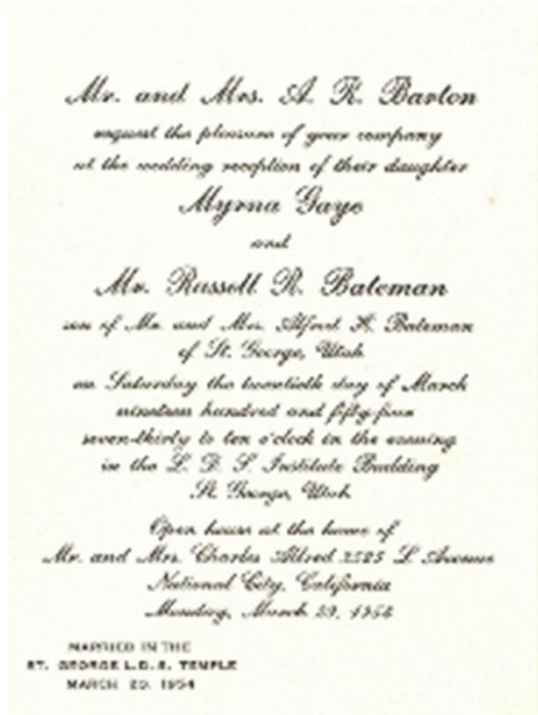 Mr. and Mrs. A. R. Barton
request the pleasure of your company
at the wedding reception of their daughter
Myrna Gaye
and
Mr. Russell R. Bateman
son of Mr. and Mrs. Alfred H. Bateman
of St. George, Utah
on Saturday the twentieth day of March
nineteen hundred and fifty-four
seven-thirty to ten o'clock in the evening
in the L. D. S. Institute Building
St. George, Utah
Open house at the home of
Mr. and Mrs. Charles Aldred 2525 L Avenue
National City, California
Monday, March 29, 1954
MARRIED IN THE
ST. GEORGE L.D.S. TEMPLE
MARCH 20, 1954